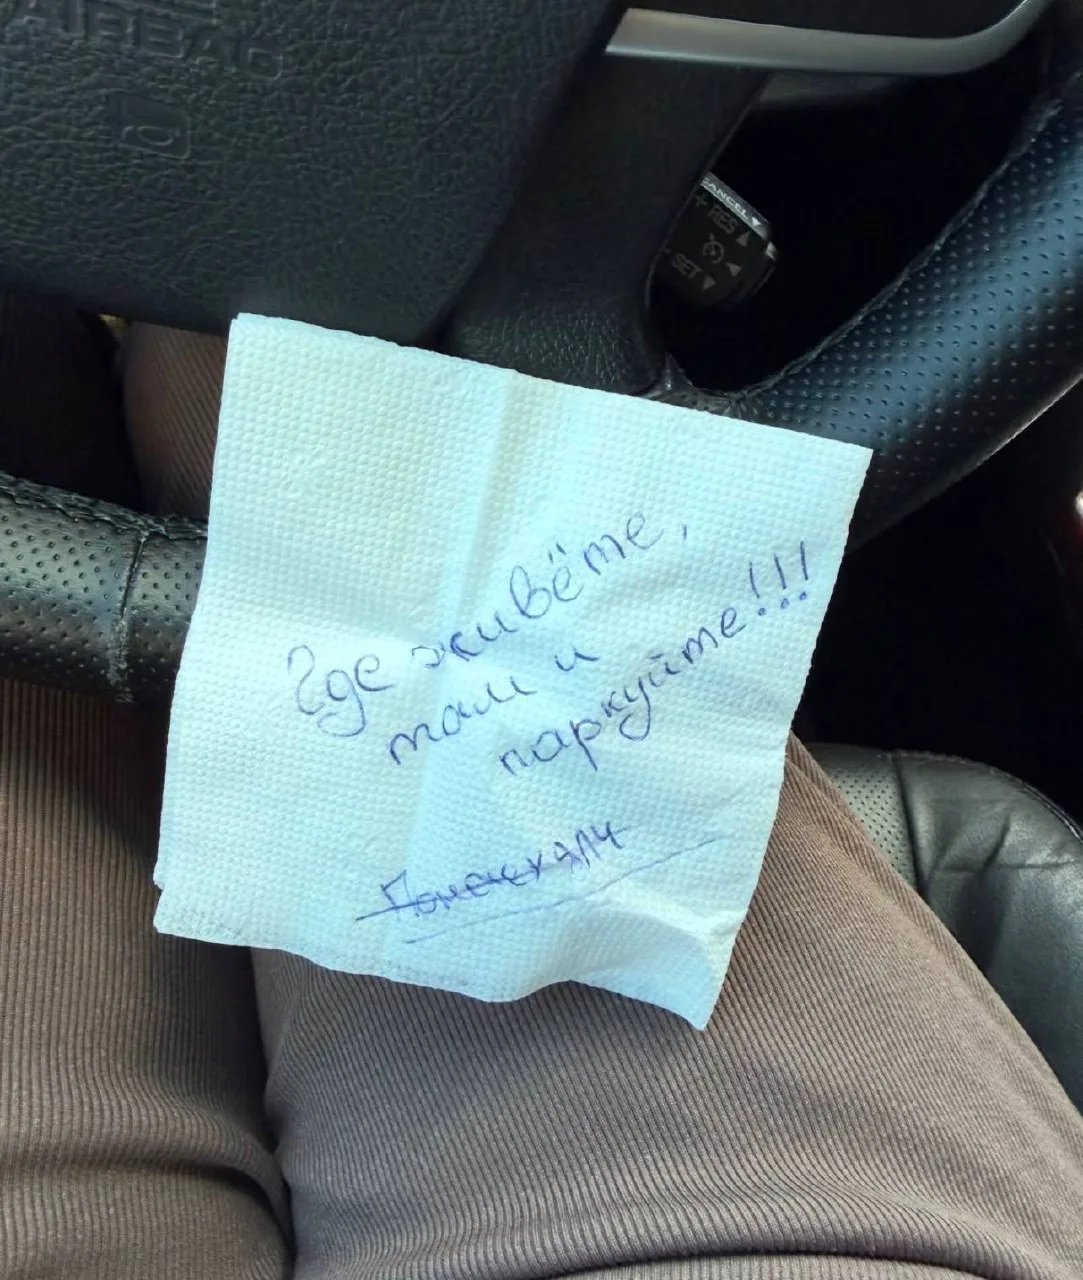 AIRBAG
CANCEL▼
+ RES ▲
- SET ▼
Где живёте,
там и
паркуйте!!!